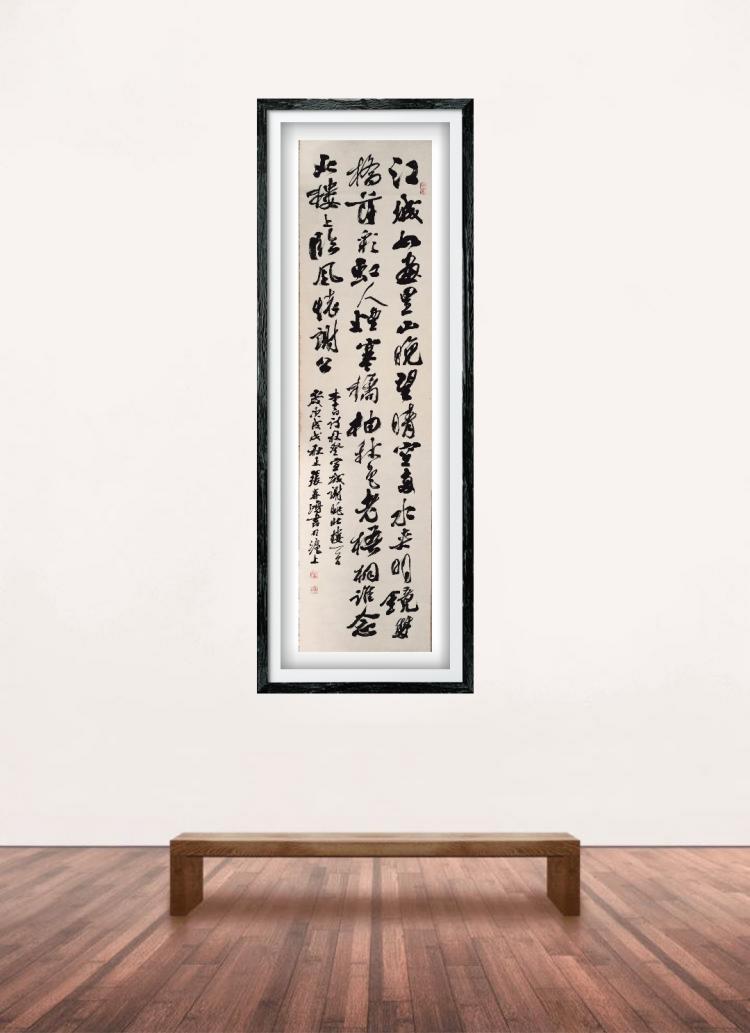 江城如畫里山晚望晴空兩水夾明鏡雙
橋落彩虹人煙寒橘柚秋色老梧桐誰念
北樓上臨風懷謝公
李白詩秋登宣城謝朓北樓一首
歲次戊戌秋張春書於滬上